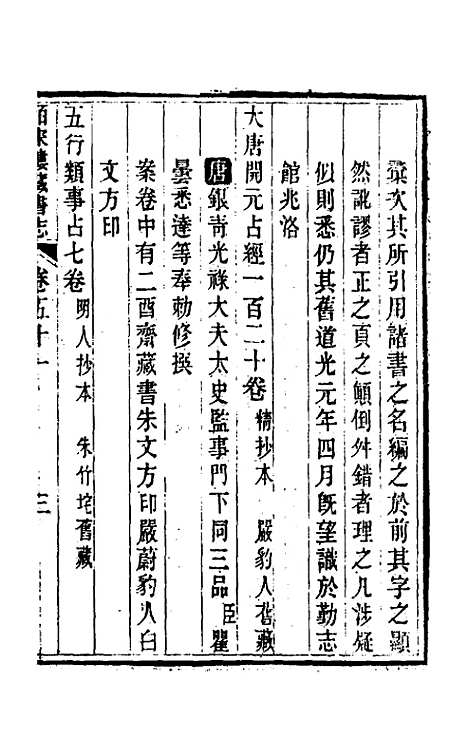 彙次其所引用諸書之名編之於前其字之顯
然訛謬者正之頁之顛倒舛錯者理之凡涉疑
似則悉仍其舊道光元年四月旣望識於勤志
館兆洛
大唐開元占經一百二十卷 精抄本 嚴豹人舊藏
唐銀青光祿大夫太史監事門下同三品臣瞿
曇悉達等奉勅修撰
案卷中有二酉齋藏書朱文方印嚴蔚豹人白
文方印
五行類事占七卷 明人抄本 朱竹垞舊藏
皕宋樓藏書志 卷五十一 三